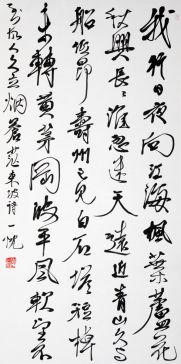 我行日夜向江海楓葉蘆花
秋興長〻淮忽迷天遠近青山久與
船低昂壽州已見白石塔短棹
未轉黃茅岡波平風軟望不
到故人久立烟蒼茫東坡詩一